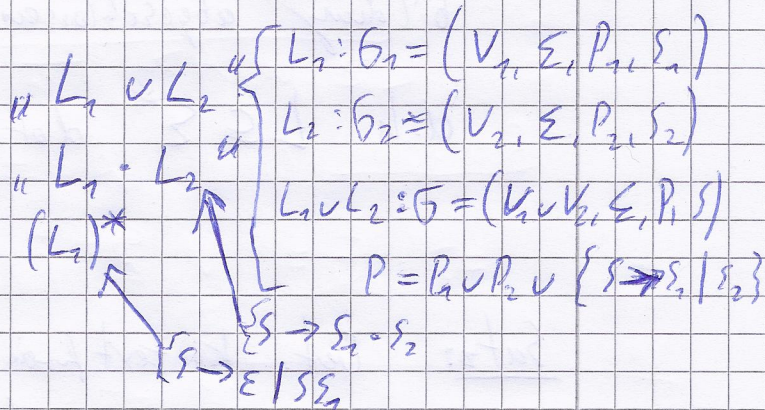 „L₁ ∪ L₂“ { L₁ : G₁ = (V₁, Σ, P₁, S₁)
L₂ : G₂ = (V₂, Σ, P₂, S₂)
„L₁ · L₂“
L₁ ∪ L₂ : G = (V₁ ∪ V₂, Σ, P, S)
(L₁)*
P = P₁ ∪ P₂ ∪ {S → S₁ | S₂}
{S → S₁ · S₂
{S → ε | SS₁